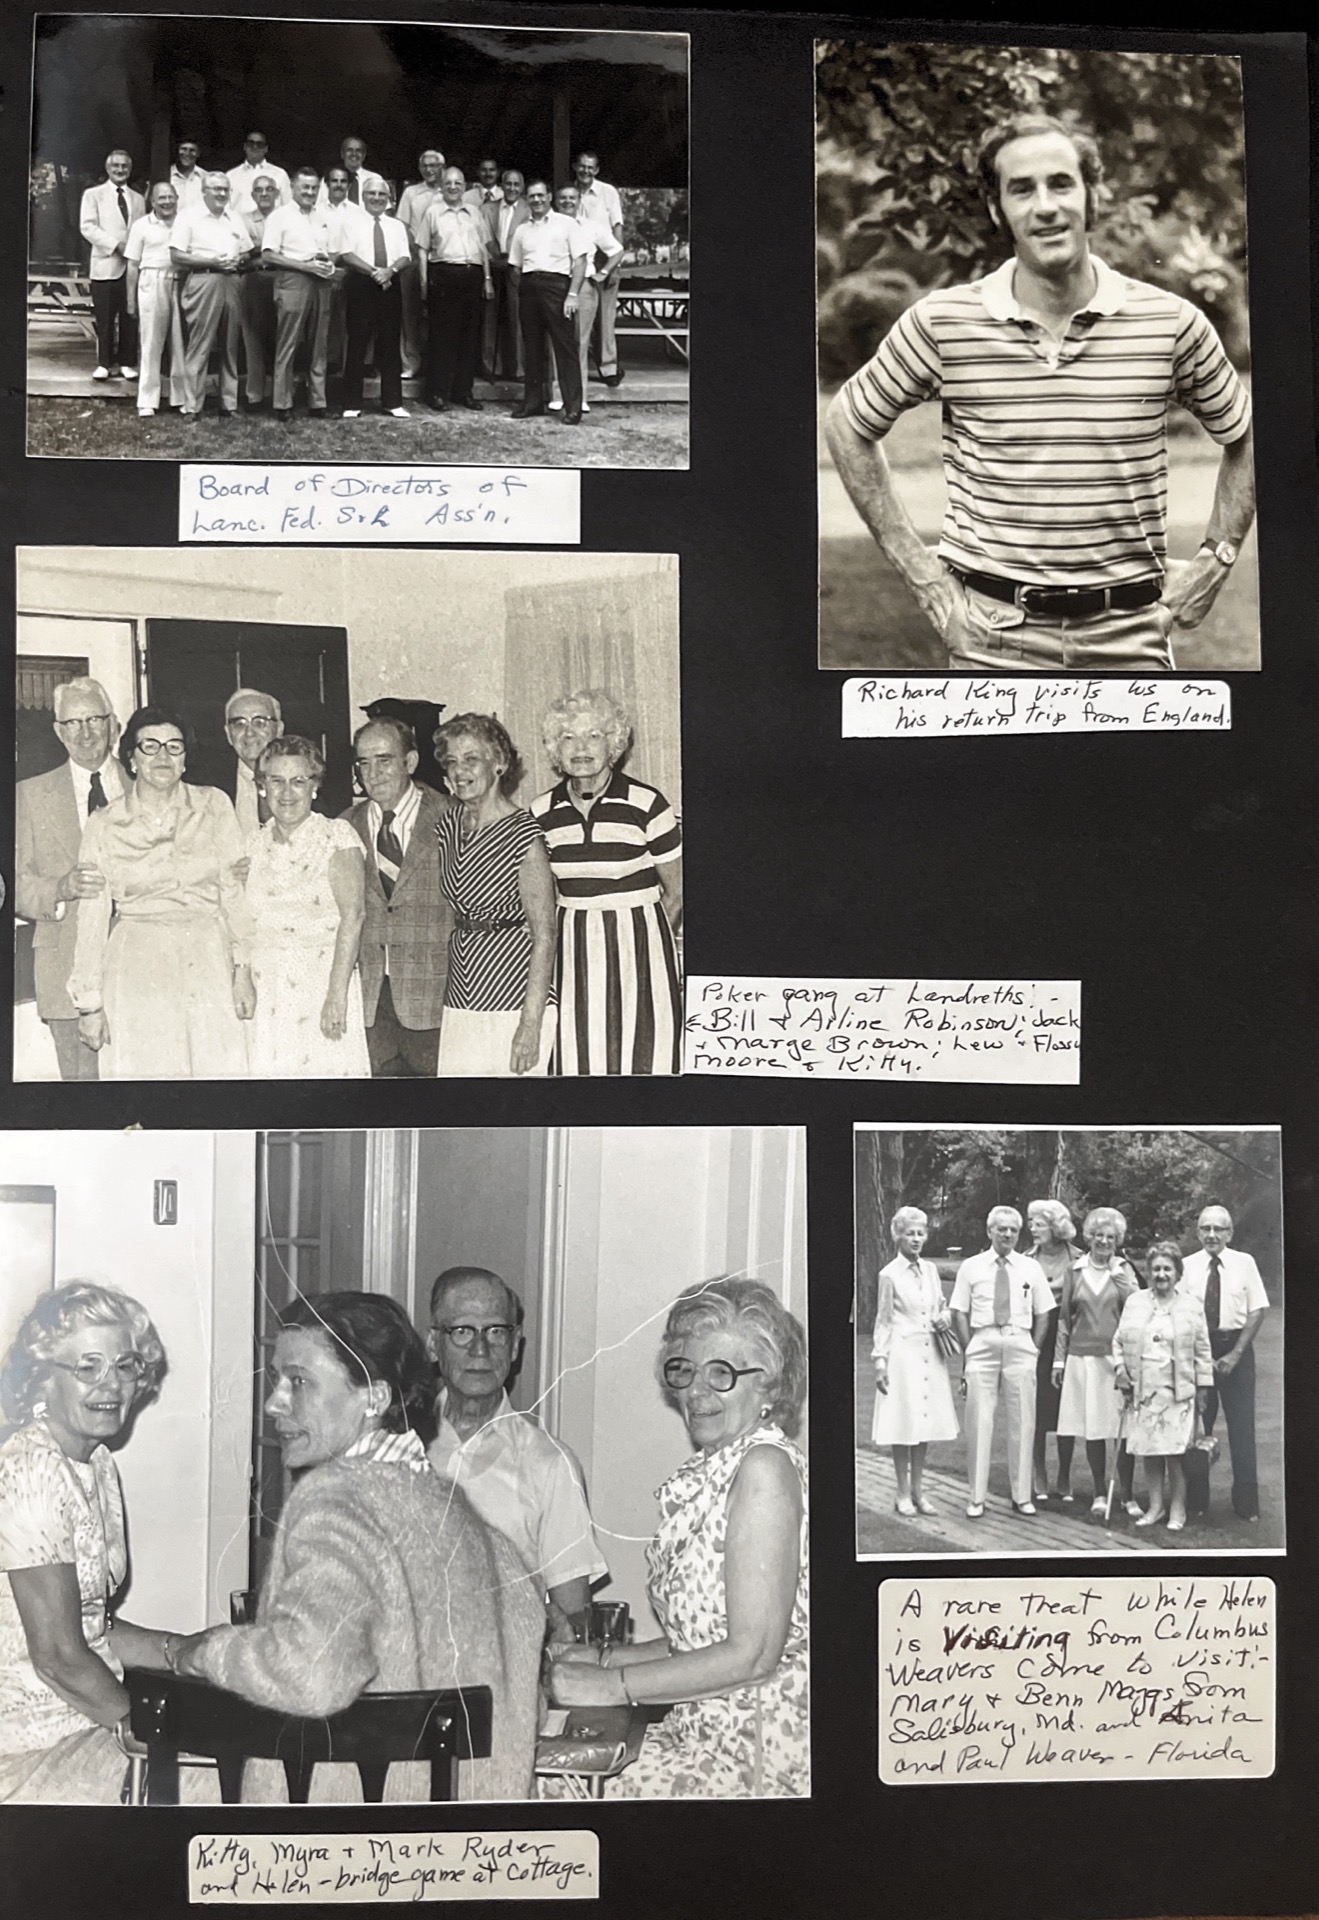 Board of Directors of
Lanc. Fed. S&L Ass'n.
Richard King visits us on
his return trip from England.
Poker gang at Landreths! -
Bill + Arline Robinson; Jack
+ Marge Brown; Lew + Flossy
Moore + Kitty.
A rare treat while Helen
is Visiting from Columbus
Weavers come to visit! -
Mary + Benn Maggs from
Salisbury, Md. and Anita
and Paul Weaver - Florida
Kitty, Myra + Mark Ryder
and Helen - bridge game at Cottage.